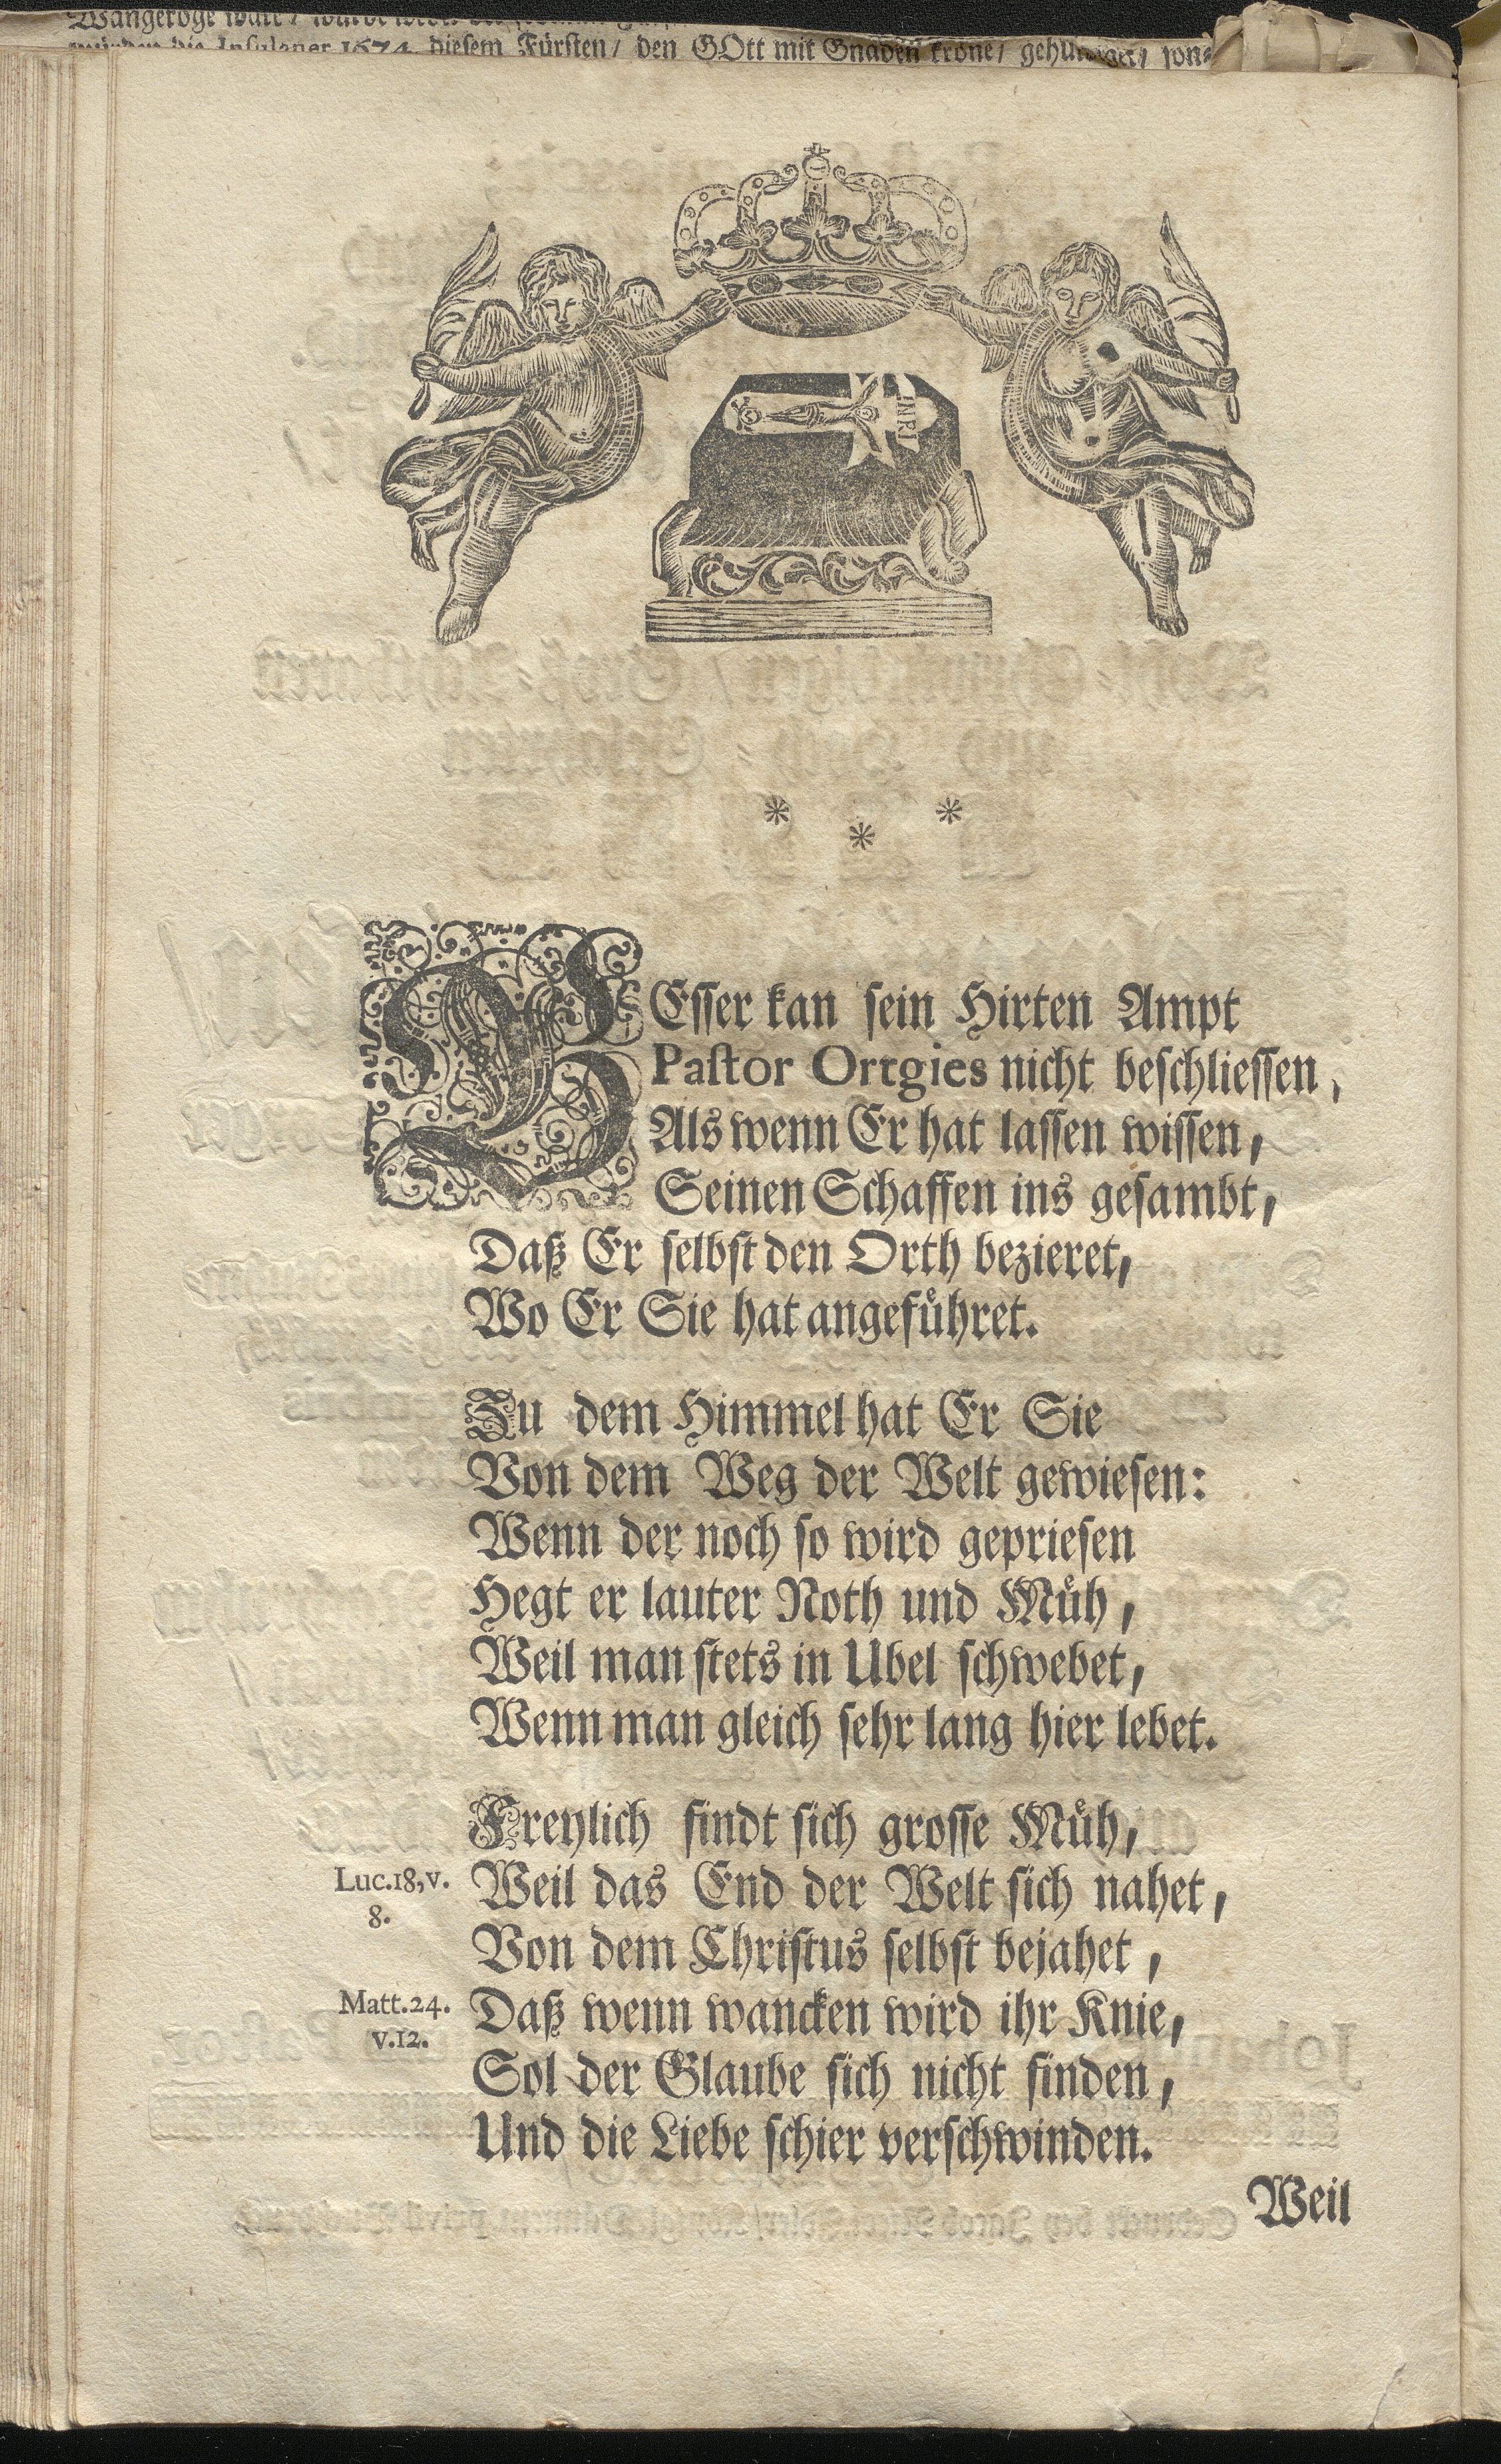 würden die Insulaner 1674. diesem Fürsten / den GOtt mit Gnaden kröne /
INRI
* * *
BEsser kan sein Hirten Ampt
Pastor Ortgies nicht beschliessen,
Als wenn Er hat lassen wissen,
Seinen Schaffen ins gesambt,
Daß Er selbst den Orth bezieret,
Wo Er Sie hat angefuͤhret.
Zu dem Himmel hat Er Sie
Von dem Weg der Welt gewiesen:
Wenn der noch so wird gepriesen
Hegt er lauter Noth und Muͤh,
Weil man stets in Ubel schwebet,
Wenn man gleich sehr lang hier lebet.
Freylich findt sich grosse Muͤh,
Luc.18,v. 8.
Weil das End der Welt sich nahet,
Von dem Christus selbst bejahet,
Matt.24. v.12.
Daß wenn wancken wird ihr Knie,
Sol der Glaube sich nicht finden,
Und die Liebe schier verschwinden.
Weil